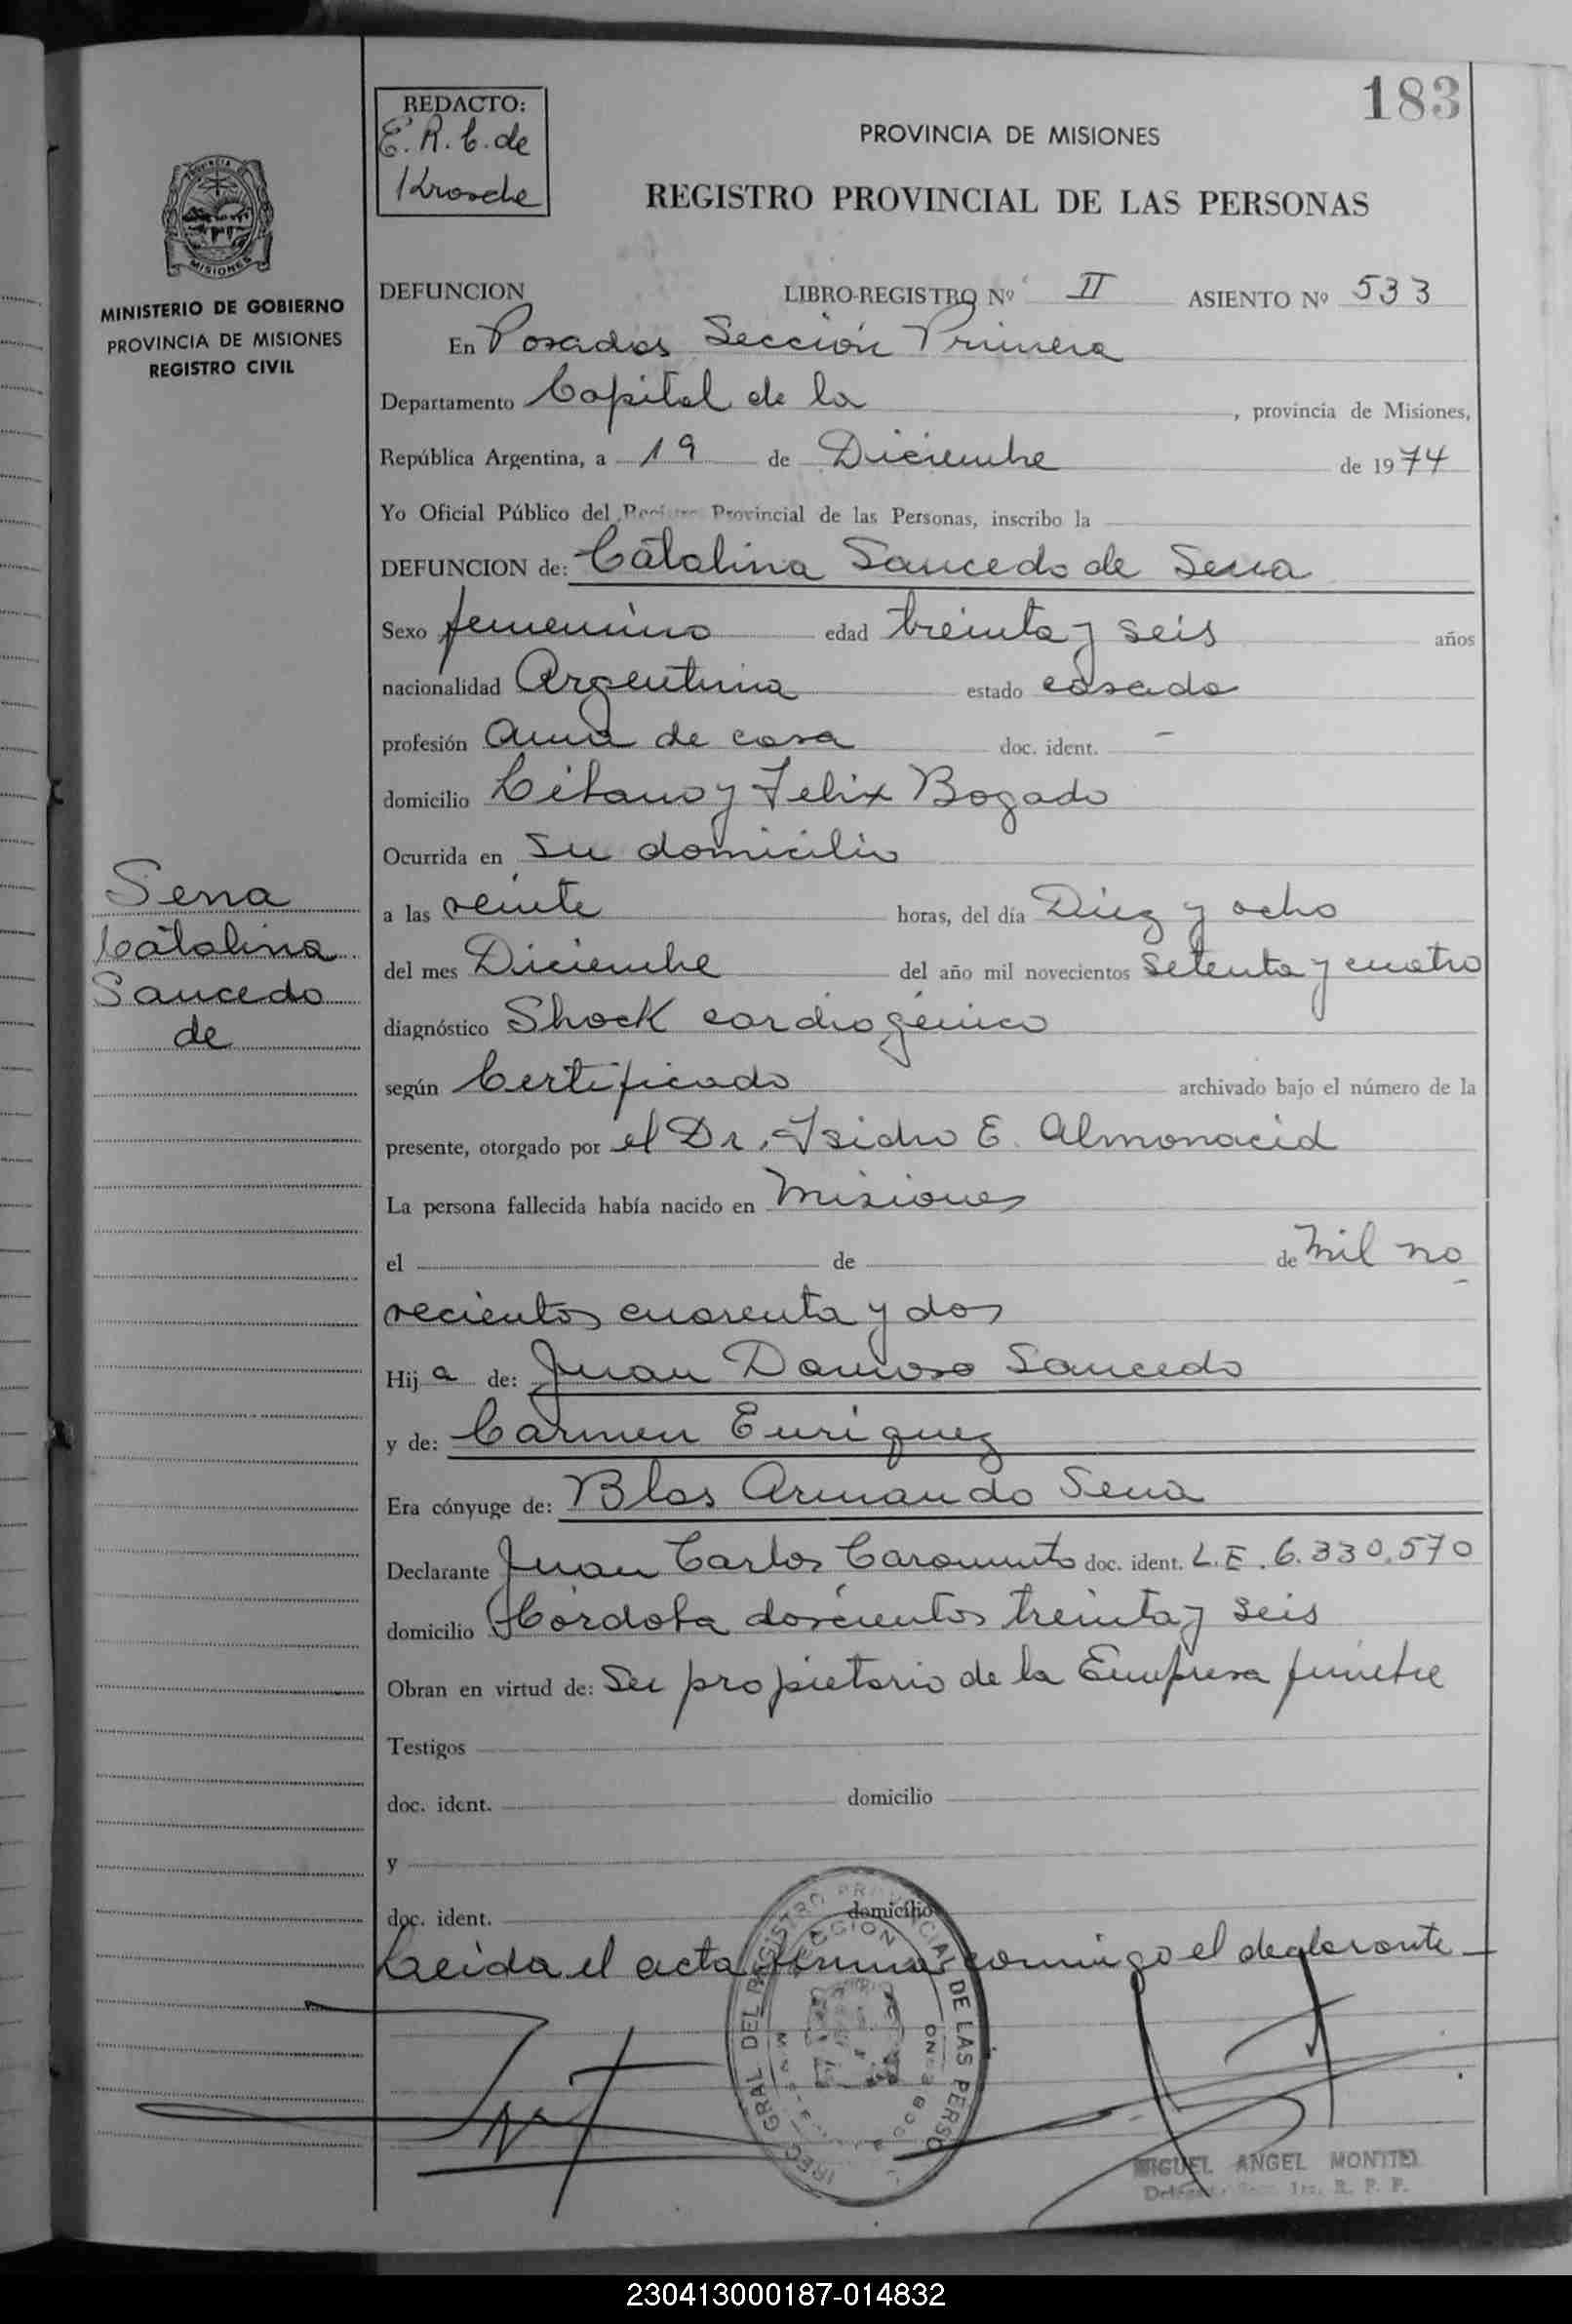 183
REDACTO:
E. R. C. de
Krosche
PROVINCIA DE MISIONES
REGISTRO PROVINCIAL DE LAS PERSONAS
MISIONES
MINISTERIO DE GOBIERNO
PROVINCIA DE MISIONES
REGISTRO CIVIL
DEFUNCION LIBRO-REGISTRO Nº II ASIENTO Nº 533
En Posadas Sección Primera
Departamento Capital de la , provincia de Misiones,
República Argentina, a 19 de Diciembre de 1974
Yo Oficial Público del Registro Provincial de las Personas, inscribo la
DEFUNCION de: Catalina Saucedo de Sena
Sexo femenino edad treinta y seis años
nacionalidad Argentina estado casada
profesión Ama de casa doc. ident. -
domicilio y Felix Bogado
Ocurrida en su domicilio
a las veinte horas, del día Diez y ocho
del mes Diciembre del año mil novecientos setenta y cuatro
diagnóstico Shock cardiogénico
según Certificado archivado bajo el número de la
presente, otorgado por el Dr. Isidro E. Almonacid
La persona fallecida había nacido en Misiones
el de de mil no
vecientos cuarenta y dos
Hija de: Juan Saucedo
y de: Carmen Enriquez
Era cónyuge de: Blas Armando Sena
Declarante Juan Carlos doc. ident. L.E. 6.330.570
domicilio Córdoba doscientos treinta y seis
Obran en virtud de: Ser propietario de la Empresa fúnebre
Testigos
doc. ident. domicilio
y
doc. ident. domicilio
Leída el acta firma conmigo el declarante
Sena
Catalina
Saucedo
de
GRAL DEL REGISTRO PROVINCIAL DE LAS PERSO
MIGUEL ANGEL MONTIEL
230413000187-014832